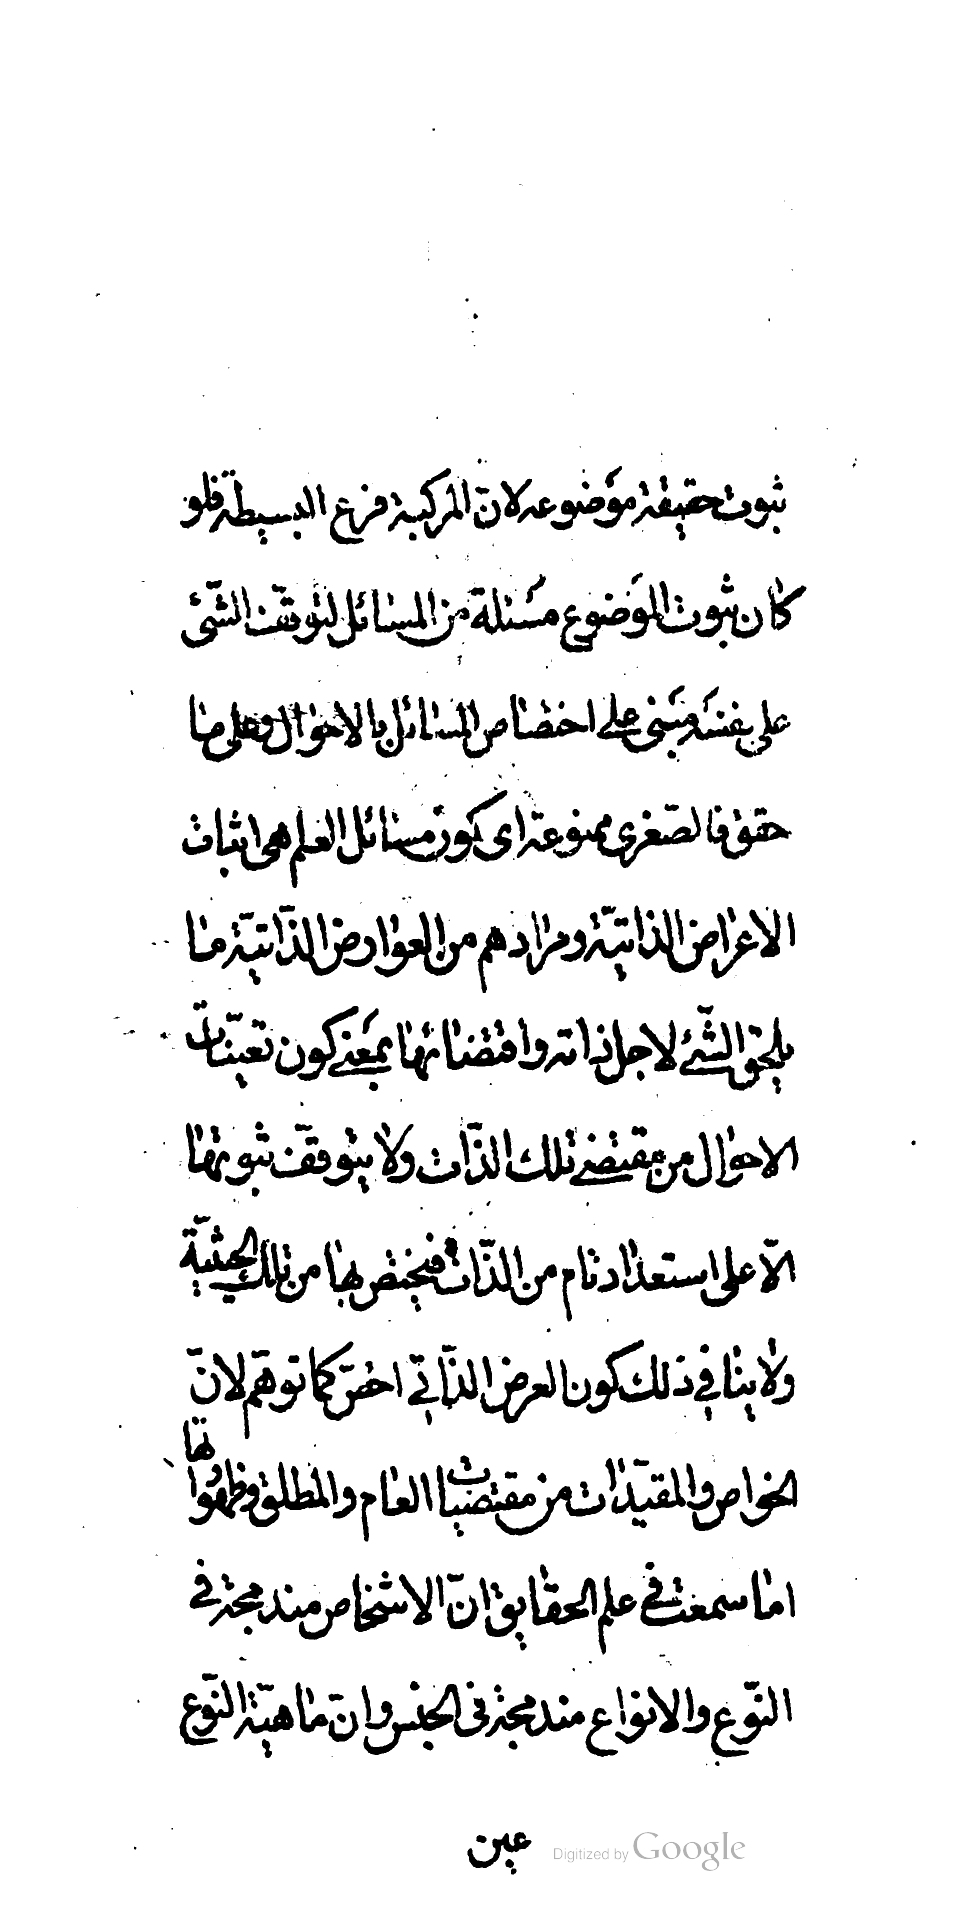 ثبوت حقيقة موضوعه لان المركبة فرع البسيطة فلو
كان ثبوت الموضوع مسئلة من المسائل لتوقف الشئ
على نفسه مبنى على اختصاص المسائل بالاحوال وعلى ما
حقق فالصغرى ممنوعة اى كون مسائل العلم هى اثبات
الاعراض الذاتيّة ومرادهم من العوارض الذّاتيّة ما
يلحق الشّئ لاجل ذاته واقتضائها بمعنى كون تعيّنات
الاحوال من مقتضى تلك الذّات ولا يتوقّف ثبوتها
الّا على استعداد تام من الذّات فيختص بها من تلك الحيثيّة
ولا ينافي ذلك كون العرض الذّاتّي اخصّ كما توهّم لانّ
الخواص والمقيّدات من مقتضيات العام والمطلق وظهوراتها
اما سمعت في علم الحقايق انّ الاشخاص مندمجة في
النّوع والانواع مندمجة فى الجنس وانّ ماهيّة النّوع
عين
Digitized by Google